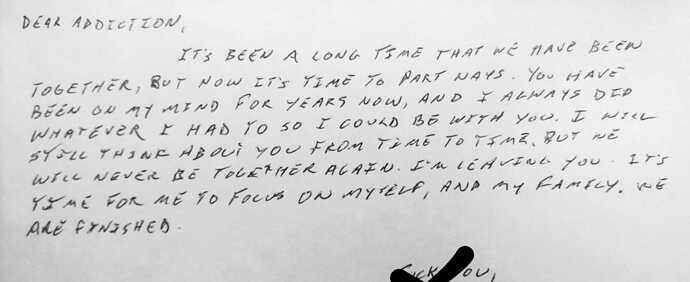 DEAR ADDICTION,
IT'S BEEN A LONG TIME THAT WE HAVE BEEN
TOGETHER, BUT NOW IT'S TIME TO PART WAYS. YOU HAVE
BEEN ON MY MIND FOR YEARS NOW, AND I ALWAYS DID
WHATEVER I HAD TO SO I COULD BE WITH YOU. I WILL
STILL THINK ABOUT YOU FROM TIME TO TIME, BUT WE
WILL NEVER BE TOGETHER AGAIN. I'M LEAVING YOU. IT'S
TIME FOR ME TO FOCUS ON MYSELF, AND MY FAMILY. WE
ARE FINISHED.